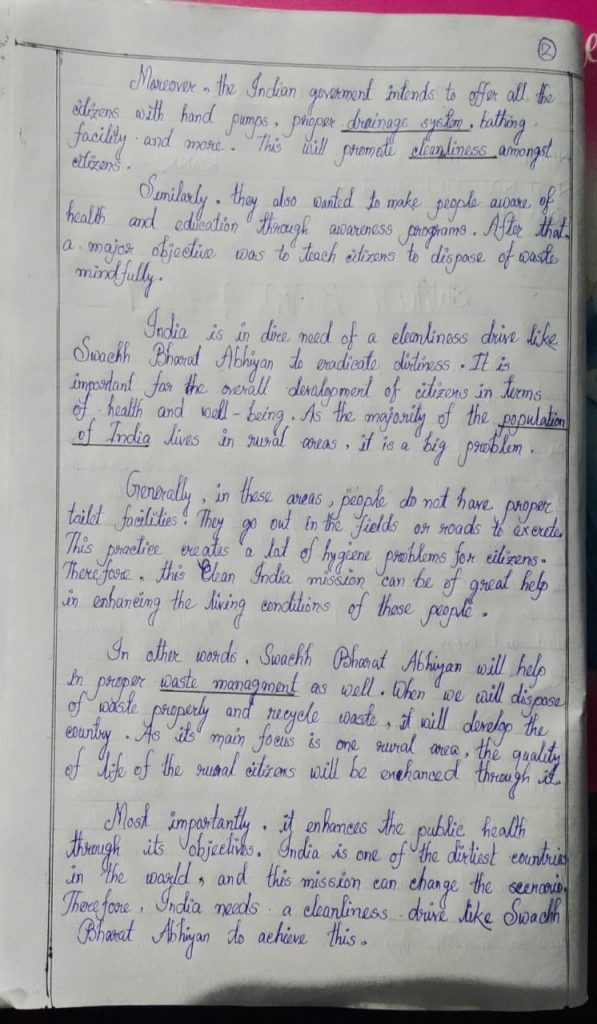 2
Moreover, the Indian goverment intends to offer all the
citizens with hand pumps, proper drainage system, bathing
facility and more. This will promote cleanliness amongst
citizens.
Similarly, they also wanted to make people aware of
health and education through awareness programs. After that
a major objective was to teach citizens to dispose of waste
mindfully.
India is in dire need of a cleanliness drive like
Swachh Bharat Abhiyan to eradicate dirtiness. It is
important for the overall development of citizens in terms
of health and well-being. As the majority of the population
of India lives in rural areas, it is a big problem.
Generally, in these areas, people do not have proper
toilet facilities. They go out in the fields or roads to excrete.
This practice creates a lot of hygiene problems for citizens.
Therefore, this Clean India mission can be of great help
in enhancing the living conditions of these people.
In other words, Swachh Bharat Abhiyan will help
in proper waste managment as well. When we will dispose
of waste properly and recycle waste, it will develop the
country. As its main focus is one rural area, the quality
of life of the rural citizens will be enchanced through it.
Most importantly, it enhances the public health
through its objectives. India is one of the dirtiest countries
in the world, and this mission can change the scenario.
Therefore, India needs a cleanliness drive like Swachh
Bharat Abhiyan to achieve this.